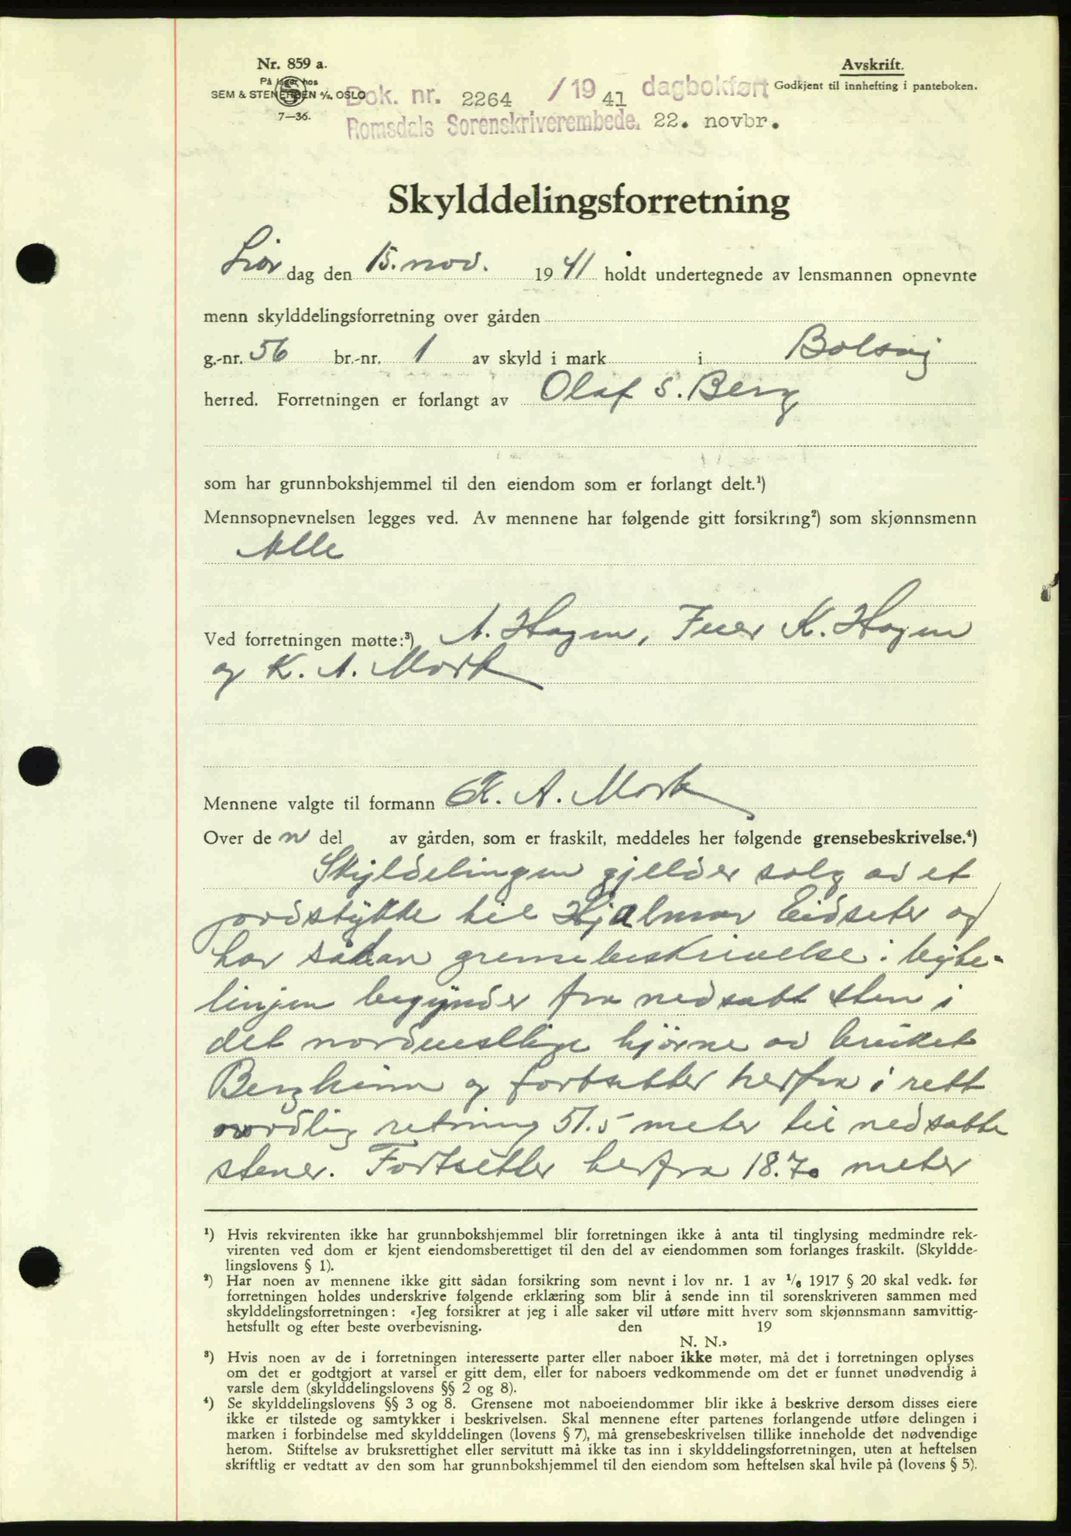 Nr. 859 a.
På lager hos
SEM & STENERSEN A/S. OSLO
7—36.
Avskrift.
Godkjent til innhefting i panteboken.
Dok. nr. 2264 /19 41 dagbokført
Romsdals Sorenskriverembede. 22. novbr.
Skylddelingsforretning
Lør dag den 15. nov. 19 41 holdt undertegnede av lensmannen opnevnte
menn skylddelingsforretning over gården
g.-nr. 56 br.-nr. 1 av skyld i mark i Bolsøy
herred. Forretningen er forlangt av Olaf S. Berg
som har grunnbokshjemmel til den eiendom som er forlangt delt.¹)
Mennsopnevnelsen legges ved. Av mennene har følgende gitt forsikring²) som skjønnsmenn
Alle
Ved forretningen møtte:³) A. Hagen, K. Hagen
og K. A. Mork
Mennene valgte til formann K. A. Mork
Over de n del av gården, som er fraskilt, meddeles her følgende grensebeskrivelse.⁴)
Skyldelingen gjelder salg av et
jordstykke til Hjalmar Eidseter og
har sådan grensebeskrivelse: Byte-
linjen begynder fra nedsatt sten i
det nordvestlige hjørne av bruket
Bergheim og fortsetter herfra i rett
nordlig retning 51.5 meter til nedsatte
stener. Fortsetter herfra 18.70 meter
¹) Hvis rekvirenten ikke har grunnbokshjemmel blir forretningen ikke å anta til tinglysing medmindre rek-
virenten ved dom er kjent eiendomsberettiget til den del av eiendommen som forlanges fraskilt. (Skyldde-
lingslovens § 1).
²) Har noen av mennene ikke gitt sådan forsikring som nevnt i lov nr. 1 av ¹/₆ 1917 § 20 skal vedk. før
forretningen holdes underskrive følgende erklæring som blir å sende inn til sorenskriveren sammen med
skylddelingsforretningen: «Jeg forsikrer at jeg i alle saker vil utføre mitt hverv som skjønnsmann samvittig-
hetsfullt og efter beste overbevisning. den 19
N. N.»
³) Hvis noen av de i forretningen interesserte parter eller naboer ikke møter, må det i forretningen oplyses
om det er godtgjort at varsel er gitt dem, eller for naboers vedkommende om det er funnet unødvendig å
varsle dem (skylddelingslovens §§ 2 og 8).
⁴) Se skylddelingslovens §§ 3 og 8. Grensene mot naboeiendommer blir ikke å beskrive dersom disses eiere
ikke er tilstede og samtykker i beskrivelsen. Skal mennene efter partenes forlangende utføre delingen i
marken i forbindelse med skylddelingen (lovens § 7), må grensebeskrivelsen tillike inneholde det nødvendige
herom. Stiftelse av bruksrettighet eller servitutt må ikke tas inn i skylddelingsforretningen, uten at heftelsen
skriftlig er vedtatt av den som har grunnbokshjemmel til den eiendom som heftelsen skal hvile på (lovens § 5).